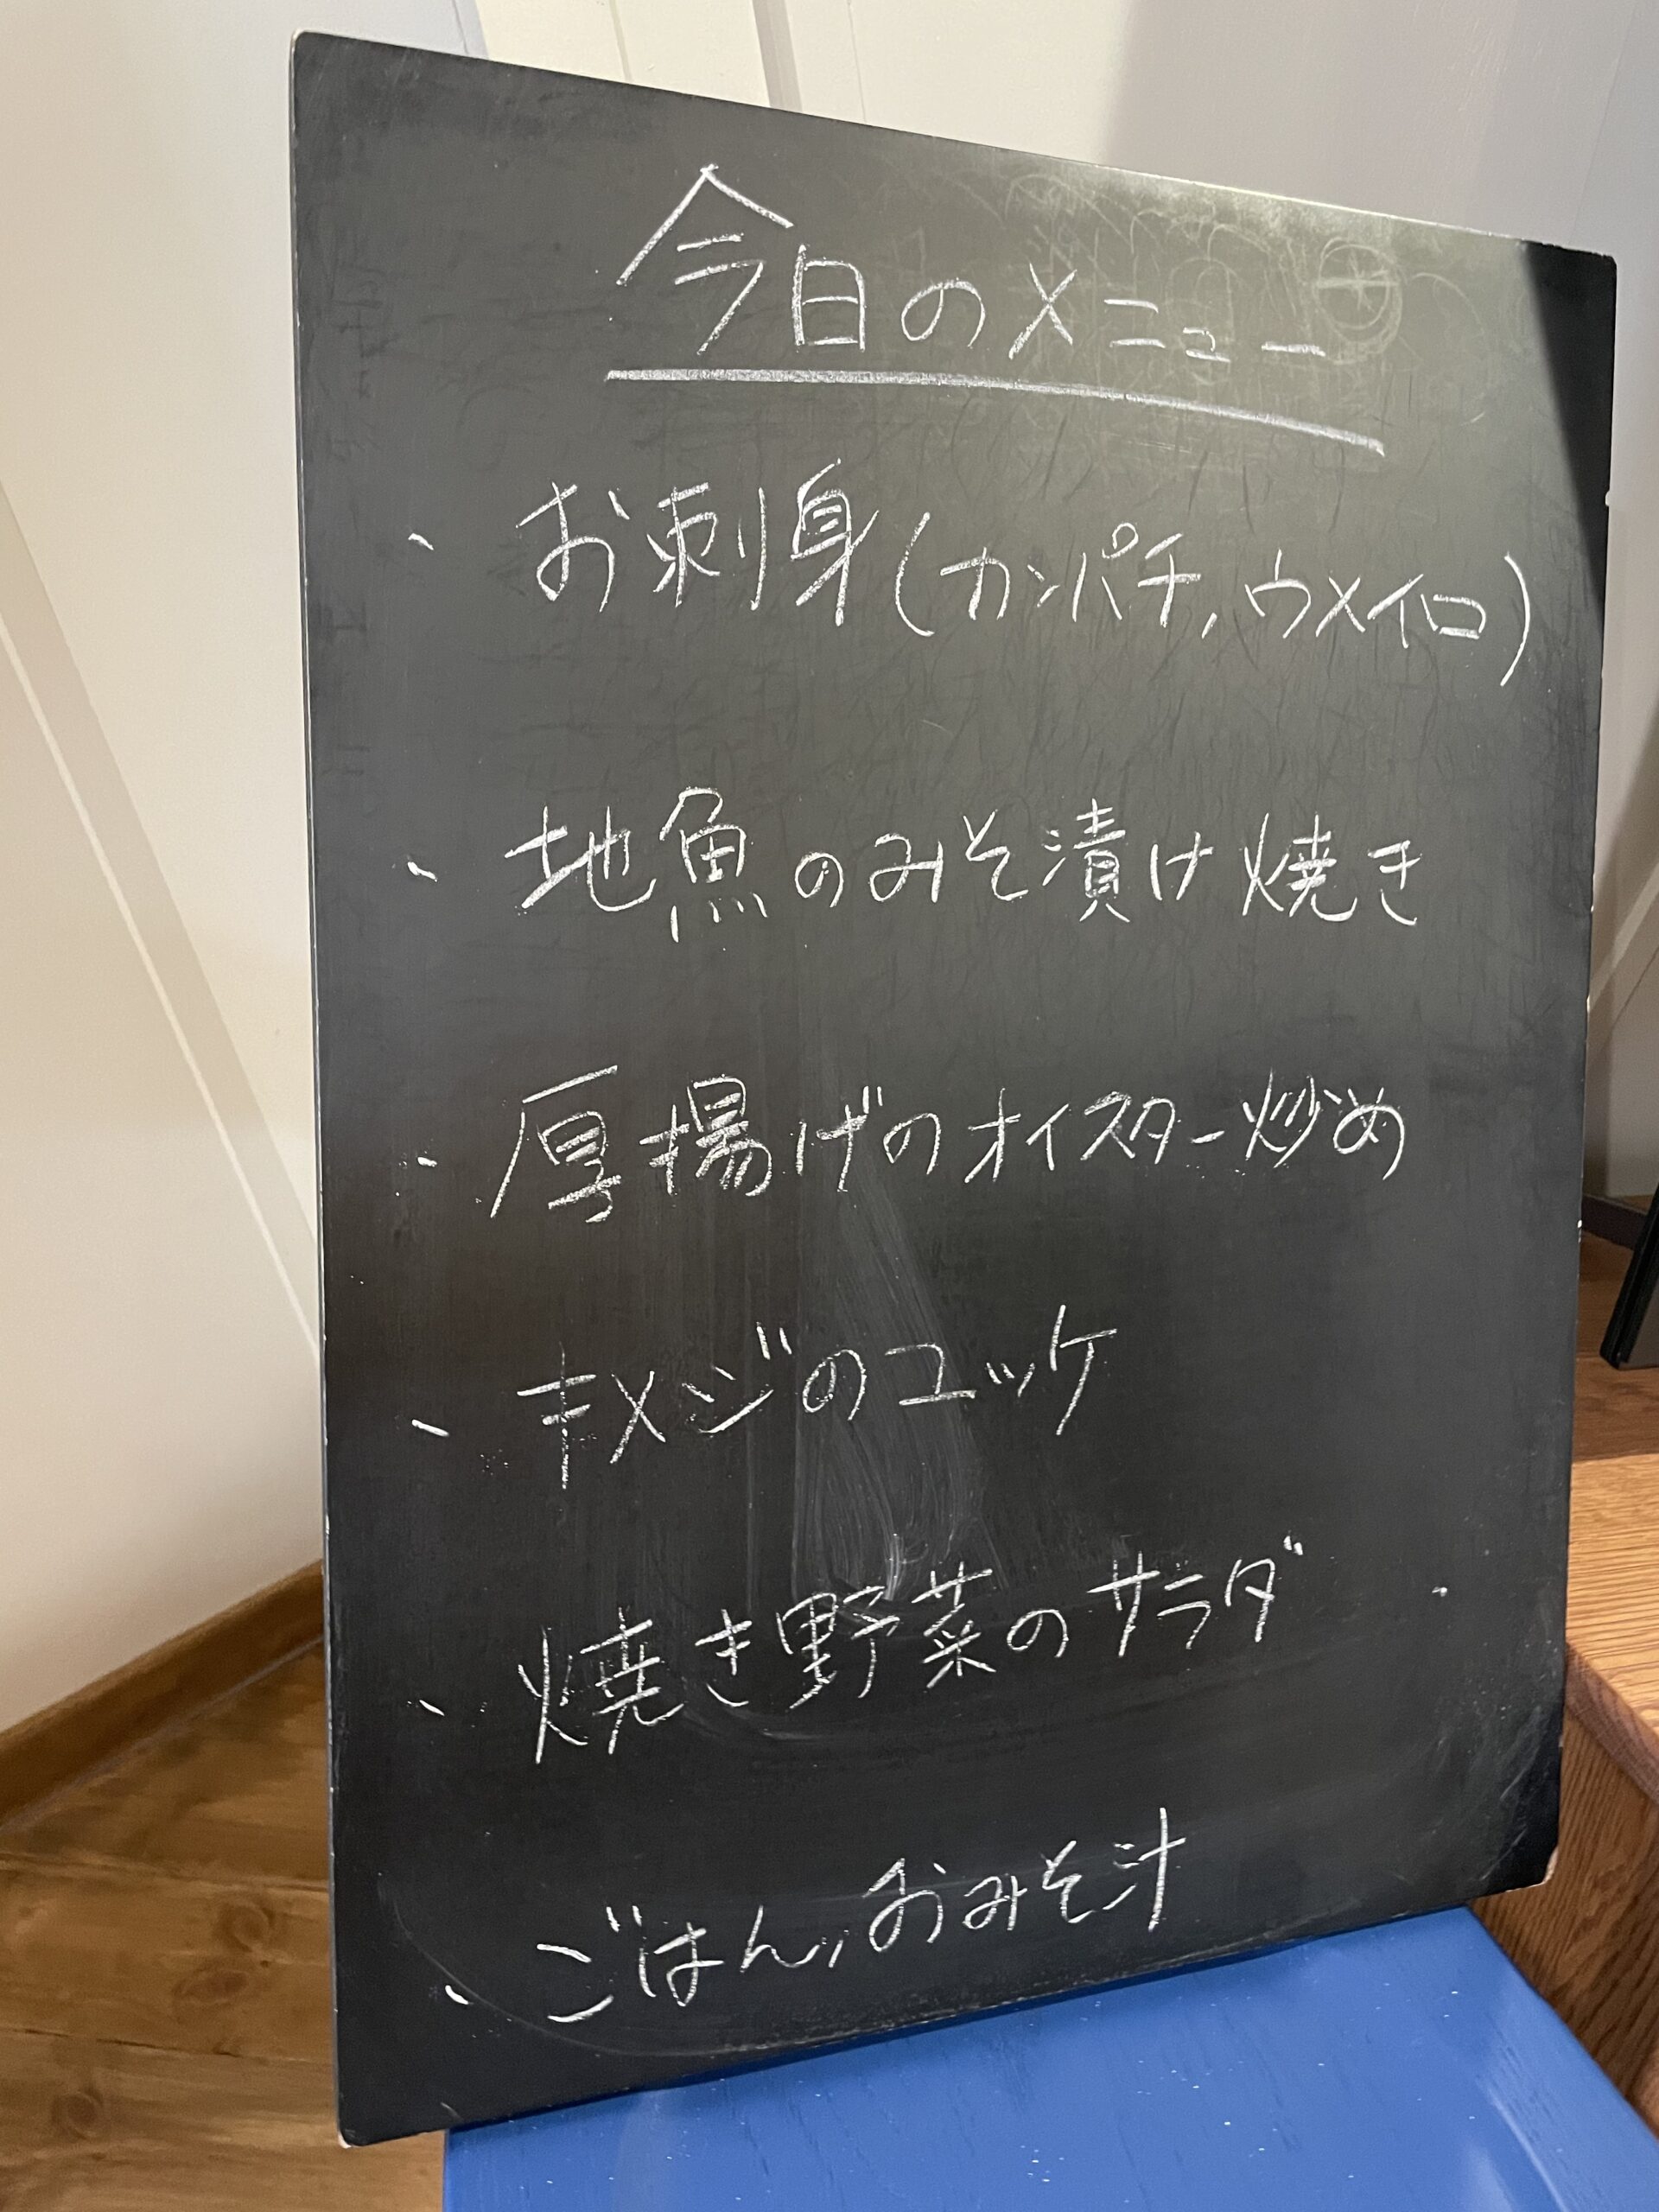 今日のメニュー
・お刺身(カンパチ,ウメイロ)
・地魚のみそ漬け焼き
・厚揚げのオイスター炒め
・キメジのユッケ
・焼き野菜のサラダ
・ごはん,おみそ汁